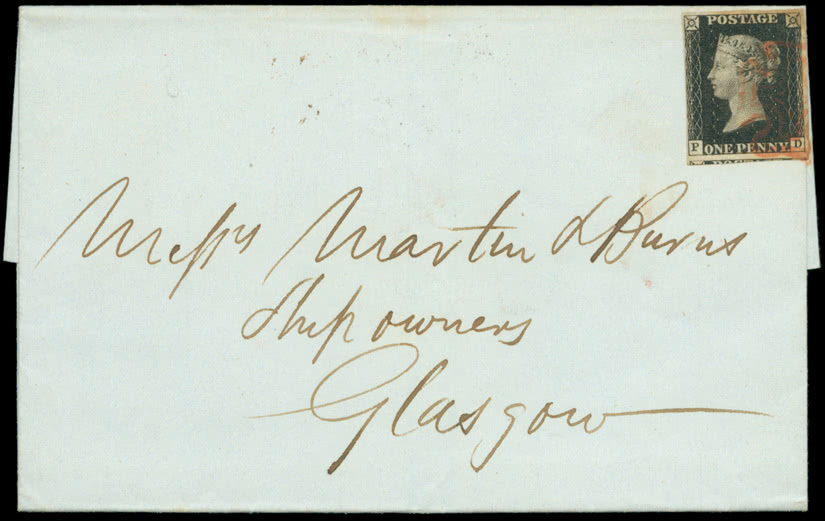 POSTAGE
P ONE PENNY D
Messrs Martin & Burns
Ship owners
Glasgow